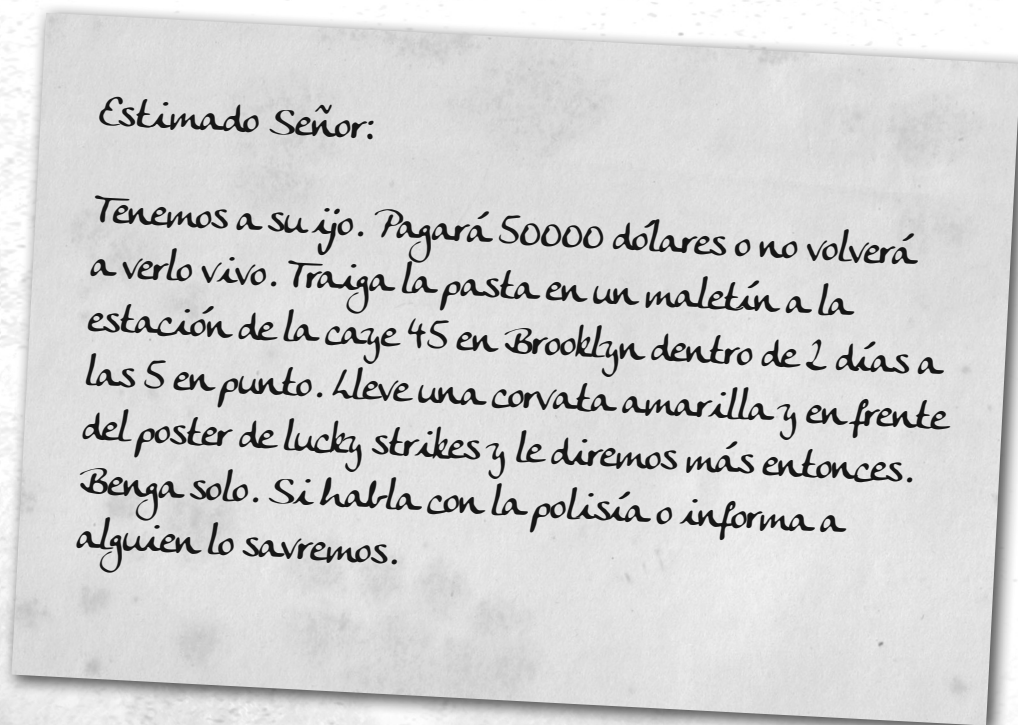 Estimado Señor:
Tenemos a su ijo. Pagará 50000 dólares o no volverá
a verlo vivo. Traiga la pasta en un maletín a la
estación de la caye 45 en Brooklyn dentro de 2 días a
las 5 en punto. Lleve una corvata amarilla y en frente
del poster de lucky strikes y le diremos más entonces.
Benga solo. Si habla con la polisía o informa a
alguien lo savremos.